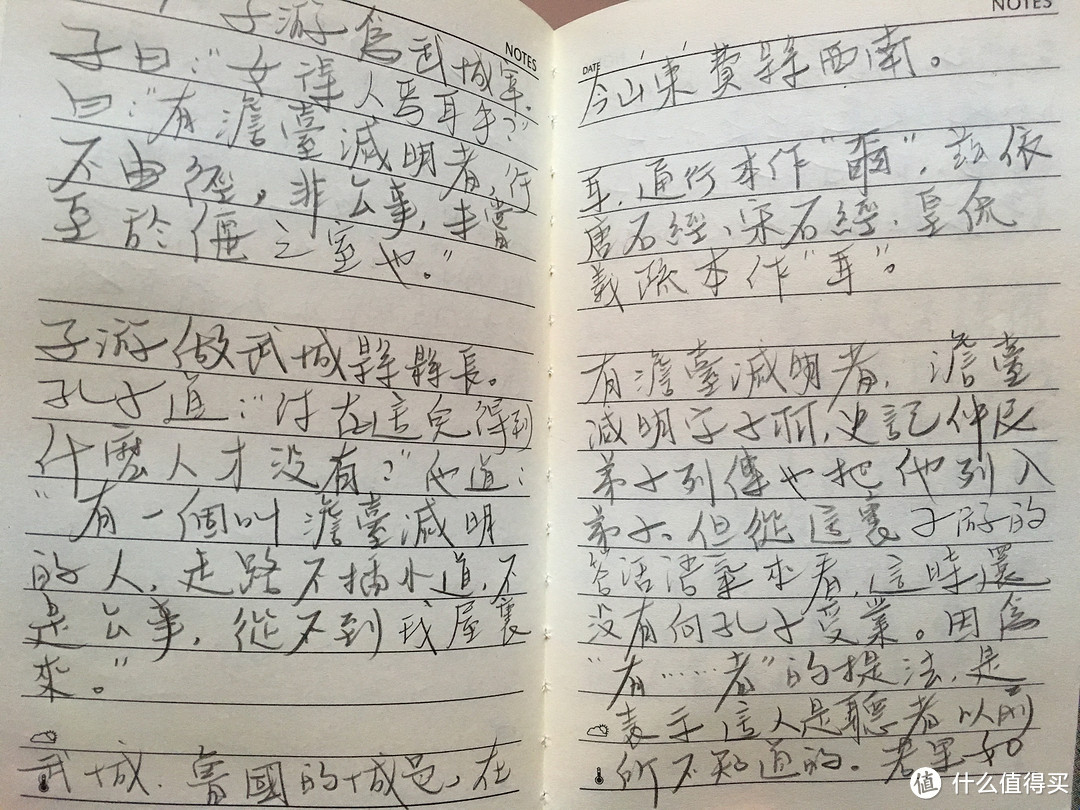 NOTES
子游為武城宰。
子曰："女得人焉耳乎？"
曰："有澹臺滅明者，行
不由徑。非公事，未嘗
至於偃之室也。"
子游做武城縣縣長。
孔子道："你在這兒得到
什麼人才沒有？"他道：
"有一個叫澹臺滅明
的人，走路不插小道，不
是公事，從不到我屋裏
來。"
武城，魯國的城邑，在
NOTES
DATE
今山東費縣西南。
耳，通行本作"爾"，茲依
唐石經、宋石經、皇侃
義疏本作"耳"。
有澹臺滅明者，澹臺
滅明字子羽，史記仲尼
弟子列傳也把他列入
弟子。但從這裏子游的
答話語氣來看，這時還
沒有向孔子受業。因為
"有……者"的提法，是
表示這人是聽者以前
所不知道的。若果如
值 什么值得买